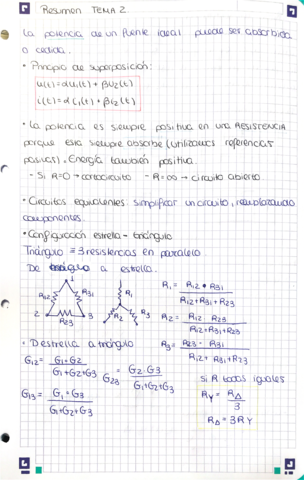 Resumen TEMA 2.
La potencia de un fuente ideal puede ser absorbida
o cedida.
• Principio de superposición:
u(t) = αu₁(t) + βu₂(t)
i(t) = α i₁(t) + βi₂(t)
• La potencia es siempre positiva en una RESISTENCIA
porque esta siempre absorbe (utilizamos referencias
pasivas). Energía también positiva.
- Si R=0 → cortocircuito - R=∞ → circuito abierto.
• Circuitos equivalentes: simplificar un circuito, remplazando
componentes.
• Configuración estrella - triángulo
Triángulo ≡ 3 resistencias en paralelo
De triángulo a estrella.
R₁ = R₁₂ • R₃₁ / R₁₂+R₃₁+R₂₃
1 R₁₂ R₃₁ 2 R₂₃ 3
R₁ R₂ R₃
R₂ = R₁₂ · R₂₃ / R₁₂+R₃₁+R₂₃
• D estrella a triángulo
R₃ = R₂₃ · R₃₁ / R₁₂+R₃₁+R₂₃
G₁₂ = G₁·G₂ / G₁+G₂+G₃
G₂₃ = G₂·G₃ / G₁+G₂+G₃
si R todas iguales
G₁₃ = G₁·G₃ / G₁+G₂+G₃
R_Y = R_Δ / 3
R_Δ = 3R_Y